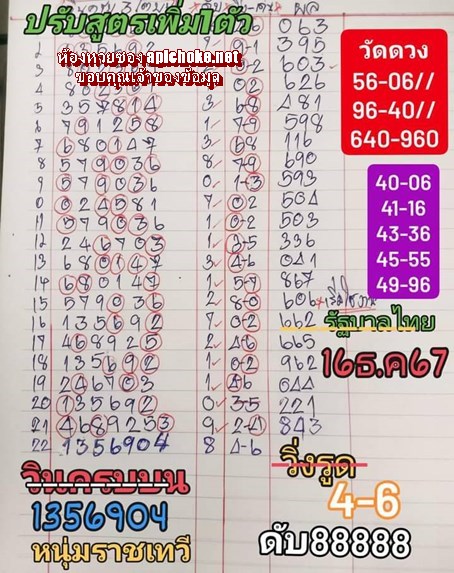 ปรับสูตรเพิ่ม1ตัว
063
2 9-1 395
ห้องหวยซอง aplchoke.net
ขอบคุณเจ้าของข้อมูล
603 ✓
02 726
5 357814 3 ✓ 68 481
6 791258 1 ✓ 79 598
7 680147 3 ✓ 58 116
8 579036 8 ✓ 79 690
9 579036 0 ✓ 1-3 593
0 024581 7 ✓ 02 504
11 579036 1 ✓ 0-2 503
12 246703 1 ✓ 3-5 336
13 680147 3 ✓ 4-6 041
14 680147 1 ✓ 5-7 867
15 579036 2 ✓ 8-0 606
16 135692 7 ✓ 0-2 662
17 468925 2 ✓ 4-6 665
18 135692 1 ✓ 0-2 962
19 246703 1 ✓ 46 044
20 135692 0 ✓ 3-5 221
21 4689253 9 ✓ 2-4 843
22 1356904 8 4-6
วัดดวง
56-06//
96-40//
640-960
40-06
41-16
43-36
45-55
49-96
รัฐบาลไทย
16ธ.ค67
วินครบบน
1356904
หนุ่มราชเทวี
วิ่งรูด
4-6
ดับ88888